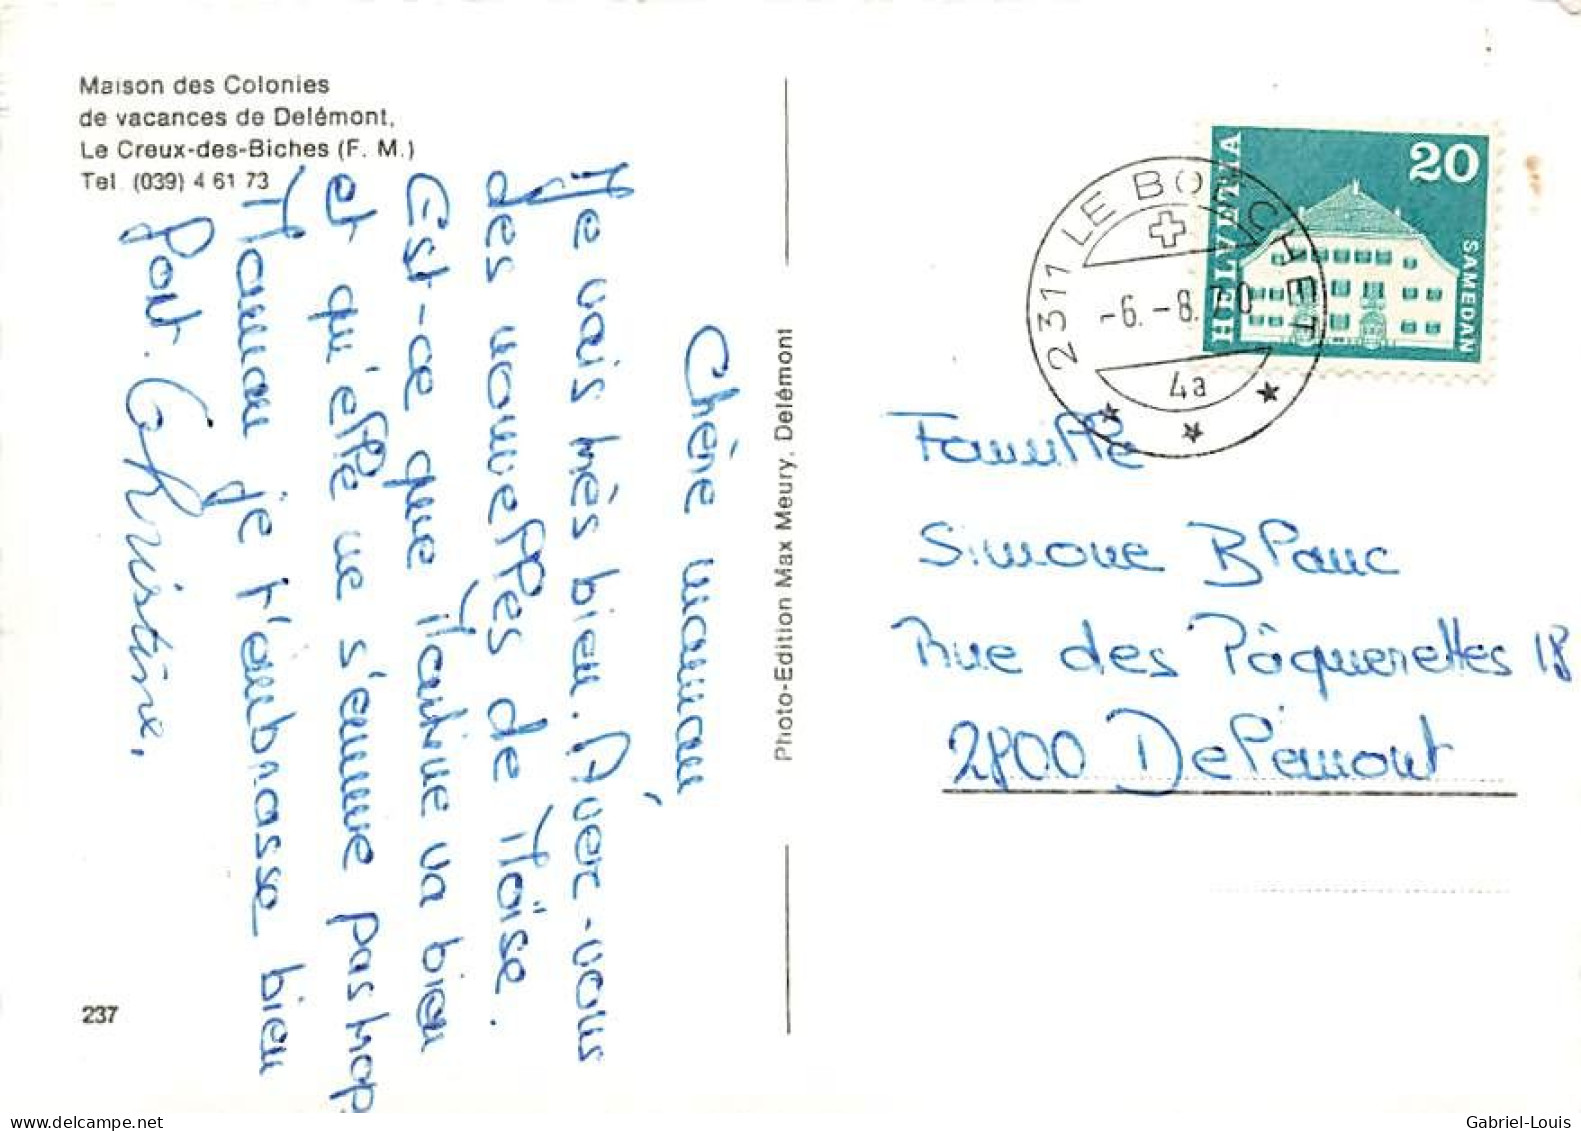 Maison des Colonies
de vacances de Delémont,
Le Creux-des-Biches (F. M.)
Tel. (039) 4 61 73
Chère maman
Je vais très bien. Avez-vous
des nouvelles de Moïse.
Est-ce que Martine va bien
et qu'elle ne s'ennuie pas trop
Maman je t'embrasse bien
fort. Christine,
237
Photo-Edition Max Meury, Delémont
HELVETIA
20
SAMEDAN
2311 LE BOUCHET
-6.-8.70
4a
Famille
Simone Blanc
Rue des Pâquerettes 18
2800 Delémont
www.delcampe.net
Gabriel-Louis